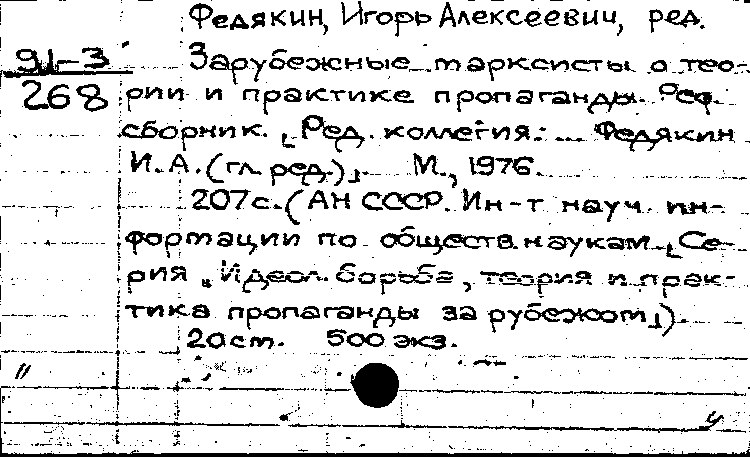 Федякин, Игорь Алексеевич, ред.
91-3
Зарубежные марксисты о тео-
268
рии и практике пропаганды. Реф.
сборник. [Ред. коллегия: ... Федякин
И.А. (гл. ред.)]. М., 1976.
207с. (АН СССР. Ин-т науч. ин-
формации по обществ. наукам. [Се-
рия "Идеол. борьба, теория и прак-
тика пропаганды за рубежом]).
20 см. 500 экз.